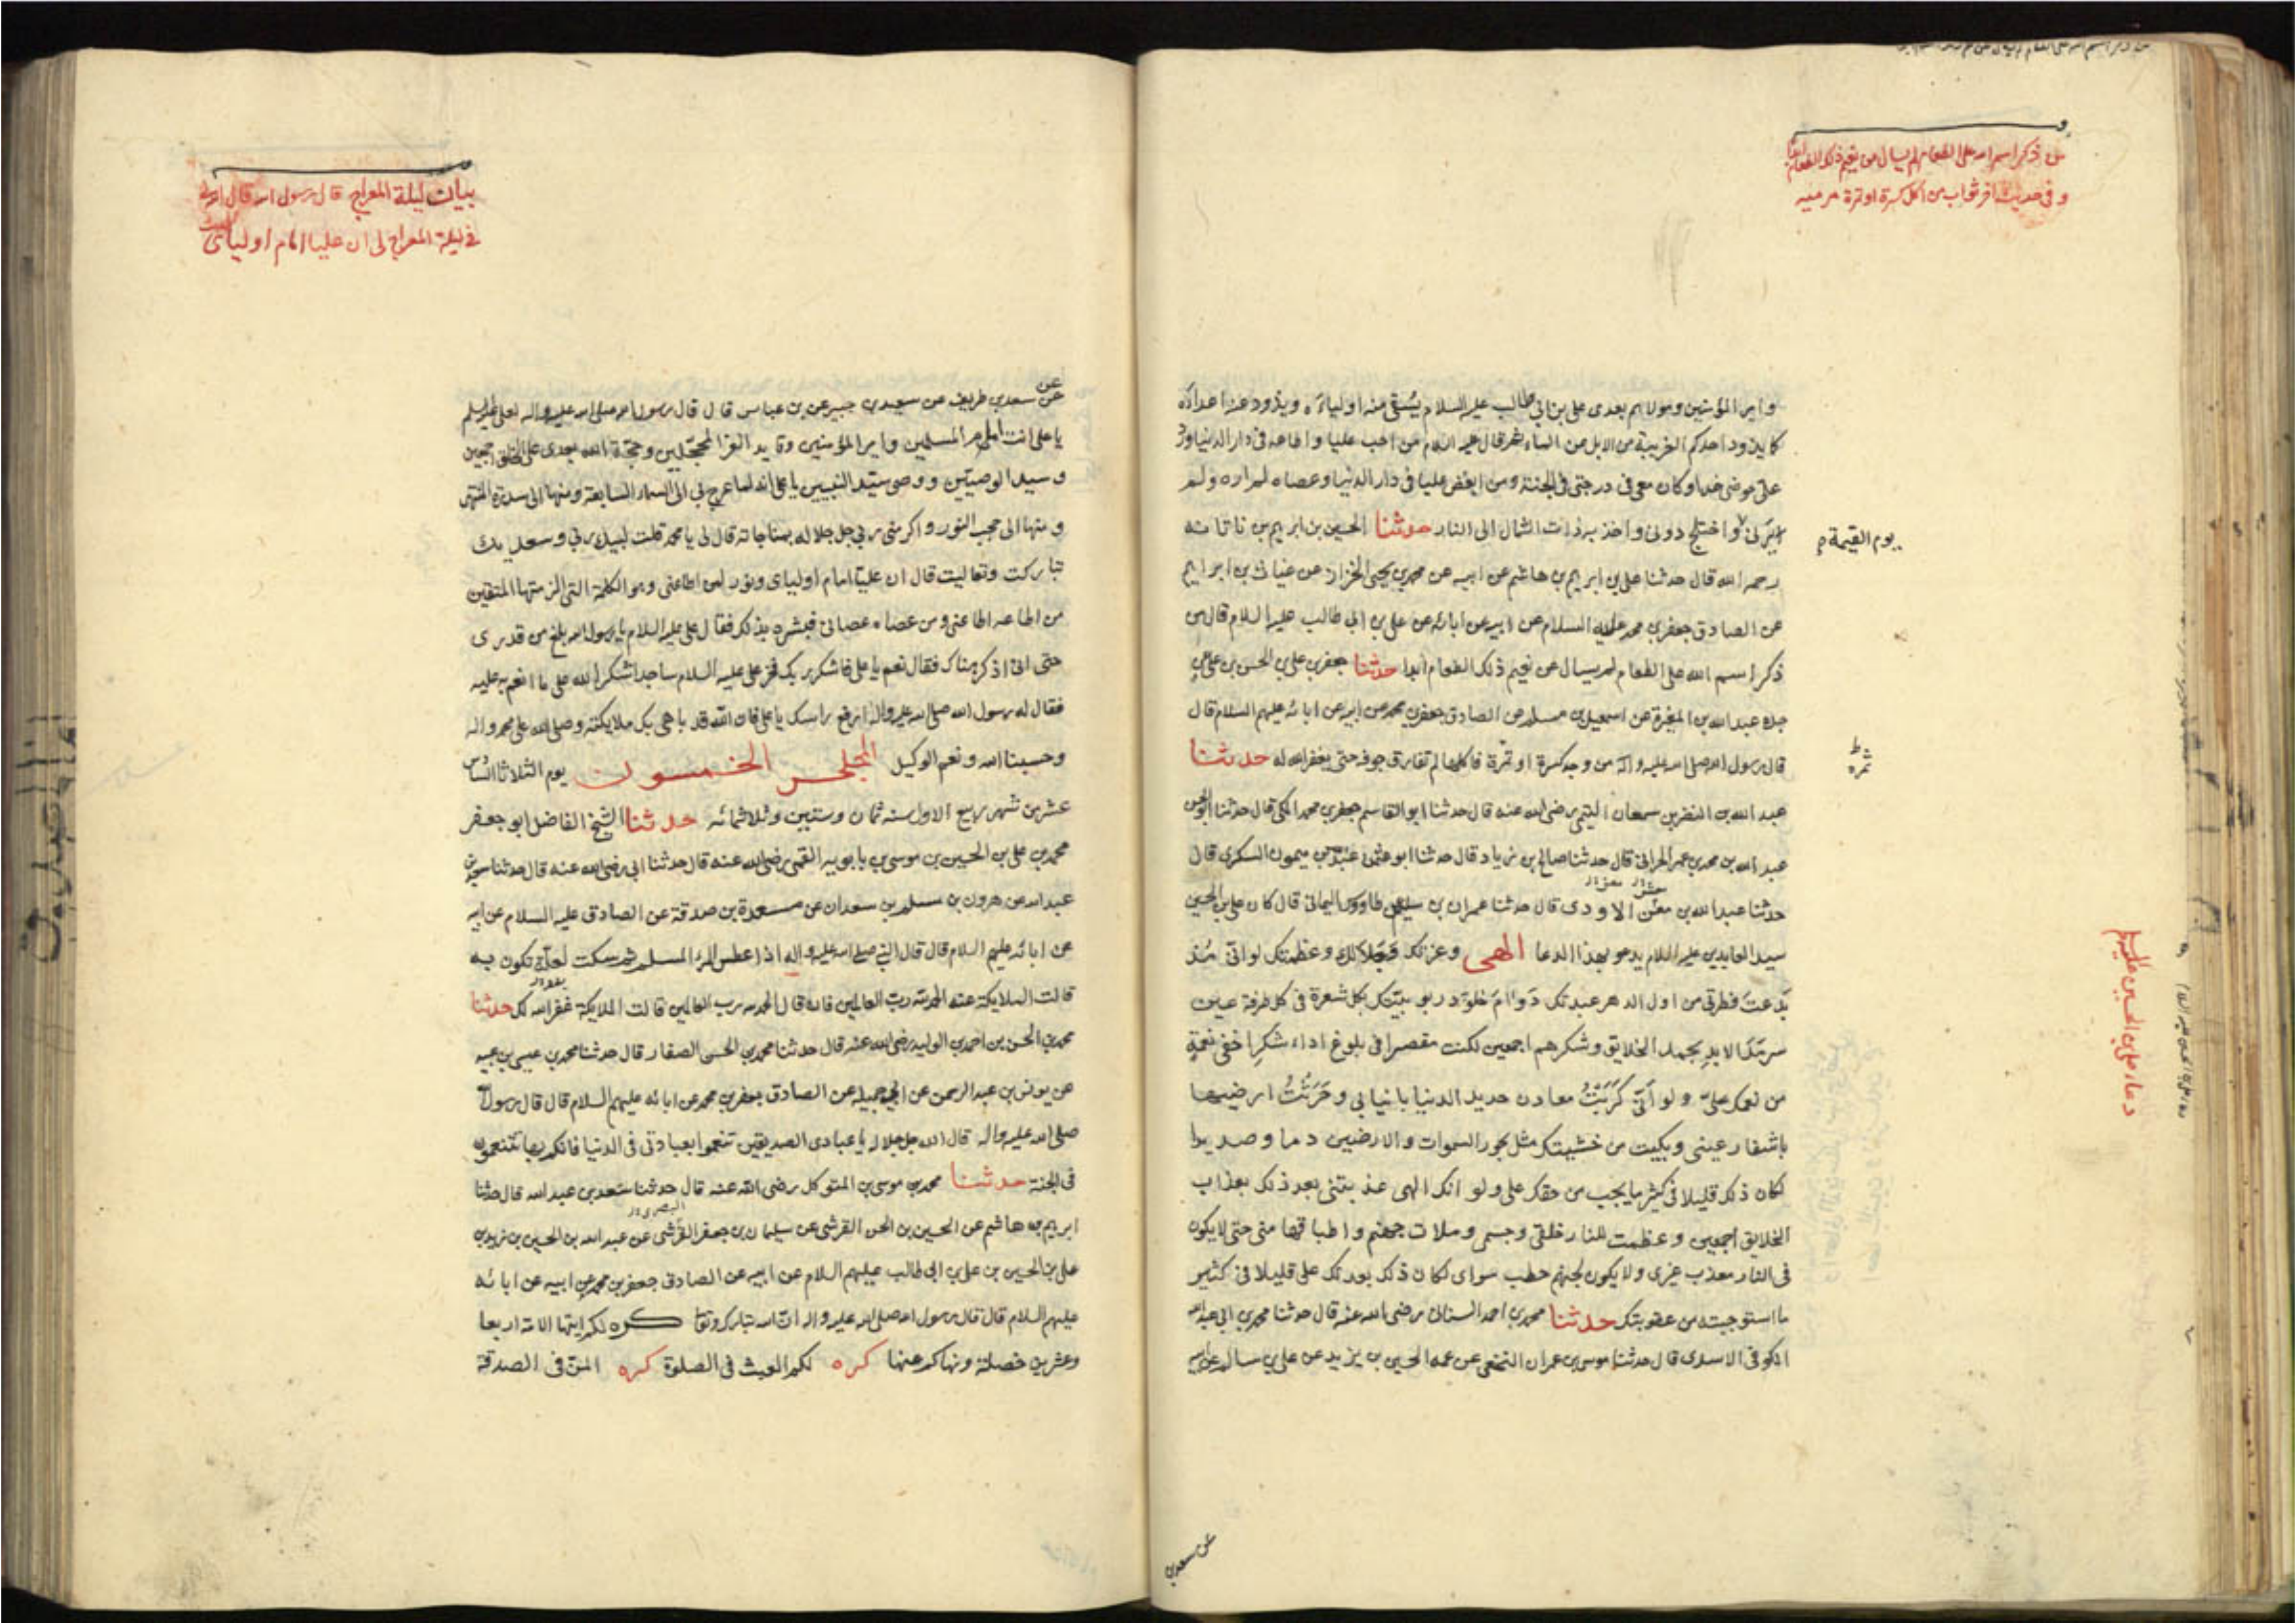 من ذكر اسم الله على الطعام لم يسال عن نعيم ذلك الطعام ابدا
و فى حديث اخر ثواب من اكل كسرة او تمرة مرمية
و امير المؤمنين و مولاهم بعدى على بن ابي طالب عليه السلام يسقى منه اولياءه و يذود عنه اعداءه
كما يذود احدكم الغريبة من الابل عن الماء ثم قال عليه السلام من احب عليا و اطاعه فى دار الدنيا ورد
على حوضى غدا و كان معى فى درجتى فى الجنة و من ابغض عليا فى دار الدنيا و عصاه لم اره و لم
يرنى و اختلج دونى و اخذ به ذات الشمال الى النار حدثنا الحسين بن ابرهيم بن ناتانه
يوم القيمة
رحمه الله قال حدثنا على بن ابرهيم بن هاشم عن ابيه عن محمد بن يحيى الخزاز عن غياث بن ابراهيم
عن الصادق جعفر بن محمد عليه السلام عن ابيه عن ابائه عن على بن ابي طالب عليه السلام قال من
ذكر اسم الله على الطعام لم يسال عن نعيم ذلك الطعام ابدا حدثنا جعفر بن على بن الحسن بن على عن
جده عبد الله بن المغيرة عن اسمعيل بن مسلم عن الصادق جعفر بن محمد عن ابيه عن ابائه عليهم السلام قال
قال رسول الله صلى الله عليه و اله من وجد كسرة او تمرة فاكلها لم تفارق جوفه حتى يغفر الله له حدثنا
تمره
عبد الله بن النضر بن سمعان التيمى رضى الله عنه قال حدثنا ابو القاسم جعفر بن محمد المكى قال حدثنا ابو الحسن
عبد الله بن محمد بن عمر الحرانى قال حدثنا صالح بن زياد قال حدثنا ابو عثمن عبد بن ميمون السكرى قال
حدثنا عبد الله بن معن الاودى قال حدثنا عمران بن سليم عن طاووس اليمانى قال كان على بن الحسين
سيد العابدين عليه السلام يدعو بهذا الدعا الهى و عزتك و جلالك و عظمتك لو انى منذ
بدعت فطرتى من اول الدهر عبدتك دوام خلود ربوبيتك بكل شعرة فى كل طرفة عين
سرمد الابد بحمد الخلايق و شكرهم اجمعين لكنت مقصرا فى بلوغ اداء شكر اخفى نعمة
من نعمك على و لو انى كربت معادن حديد الدنيا بانيابى و حرثت ارضيها
باشفار عينى و بكيت من خشيتك مثل بحور السموات و الارضين دما و صديدا
لكان ذلك قليلا فى كثير ما يجب من حقك على و لو انك الهى عذبتنى بعد ذلك بعذاب
الخلايق اجمعين و عظمت للنار خلقى و جسمى و ملات جهنم و اطباقها منى حتى لا يكون
فى النار معذب غيرى و لا يكون لجهنم حطب سواى لكان ذلك بعدلك على قليلا فى كثير
ما استوجبته من عقوبتك حدثنا محمد بن احمد السنانى رضى الله عنه قال حدثنا محمد بن ابى عبد الله
الكوفى الاسدى قال حدثنا موسى بن عمران النخعى عن عمه الحسين بن يزيد عن على بن سالم عن ابيه
دعاء على بن الحسين عليه السلام
عن سعد بن
بيان ليلة المعراج قال رسول الله قال الله
فى ليلة المعراج لى ان عليا امام اوليائى
عن
عن سعد بن طريف عن سعيد بن جبير عن بن عباس قال قال رسول الله صلى الله عليه و اله لعلى عليه السلم
يا على انت امام المسلمين و امير المؤمنين و قايد الغر المحجلين و حجة الله بعدى على الخلق اجمعين
و سيد الوصيين و وصى سيد النبيين يا على انه لما عرج بى الى السماء السابعة و منها الى سدرة المنتهى
و منها الى حجب النور و اكرمنى ربى جل جلاله بمناجاته قال لى يا محمد قلت لبيك ربى و سعديك
تباركت و تعاليت قال ان عليا امام اوليائى و نور لمن اطاعنى و هو الكلمة التى الزمتها المتقين
من اطاعه اطاعنى و من عصاه عصانى فبشره بذلك فقال على عليه السلام يا رسول الله بلغ من قدرى
حتى انى اذكر هناك فقال نعم يا على فاشكر ربك فخر على عليه السلام ساجدا شكرا لله على ما انعم به عليه
فقال له رسول الله صلى الله عليه و اله ارفع راسك يا على فان الله قد باهى بك ملايكته و صلى الله على محمد و اله
و حسبنا الله و نعم الوكيل المجلس الخمسون يوم الثلاثا السادس
عشر من شهر ربيع الاول سنه ثمان و ستين و ثلاثمائه حدثنا الشيخ الفاضل ابو جعفر
محمد بن على بن الحسين بن موسى بن بابويه القمى رضى الله عنه قال حدثنا ابى رضى الله عنه قال حدثنا سعد بن
عبد الله عن هرون بن مسلم بن سعدان عن مسعدة بن صدقة عن الصادق عليه السلام عن ابيه
عن ابائه عليهم السلام قال قال النبى صلى الله عليه و اله اذا عطس المرء المسلم ثم سكت لعلة تكون به
قالت الملايكة عنه الحمد لله رب العالمين فان قال الحمد لله رب العالمين قالت الملايكة غفر الله لك حدثنا
محمد بن الحسن بن احمد بن الوليد رضى الله عنه قال حدثنا محمد بن الحسن الصفار قال حدثنا محمد بن عيسى بن عبيد
عن يونس بن عبد الرحمن عن ابى جميله عن الصادق جعفر بن محمد عن ابائه عليهم السلام قال قال رسول الله
صلى الله عليه و اله قال الله جل جلاله يا عبادى الصديقين تنعموا بعبادتى فى الدنيا فانكم بها تتنعمون
فى الجنة حدثنا محمد بن موسى بن المتوكل رضى الله عنه قال حدثنا سعد بن عبد الله قال حدثنا
ابرهيم بن هاشم عن الحسين بن الحسن القرشى عن سليمان بن جعفر القرشى عن عبد الله بن الحسين بن زيد بن
على بن الحسين بن على بن ابى طالب عليهم السلام عن ابيه عن الصادق جعفر بن محمد عن ابيه عن ابائه
عليهم السلام قال قال رسول الله صلى الله عليه و اله ان الله تبارك و تعالى كره لكم ايتها الامة اربعا
و عشرين خصلة و نهاكم عنها كره لكم العبث فى الصلوة كره المن فى الصدقة